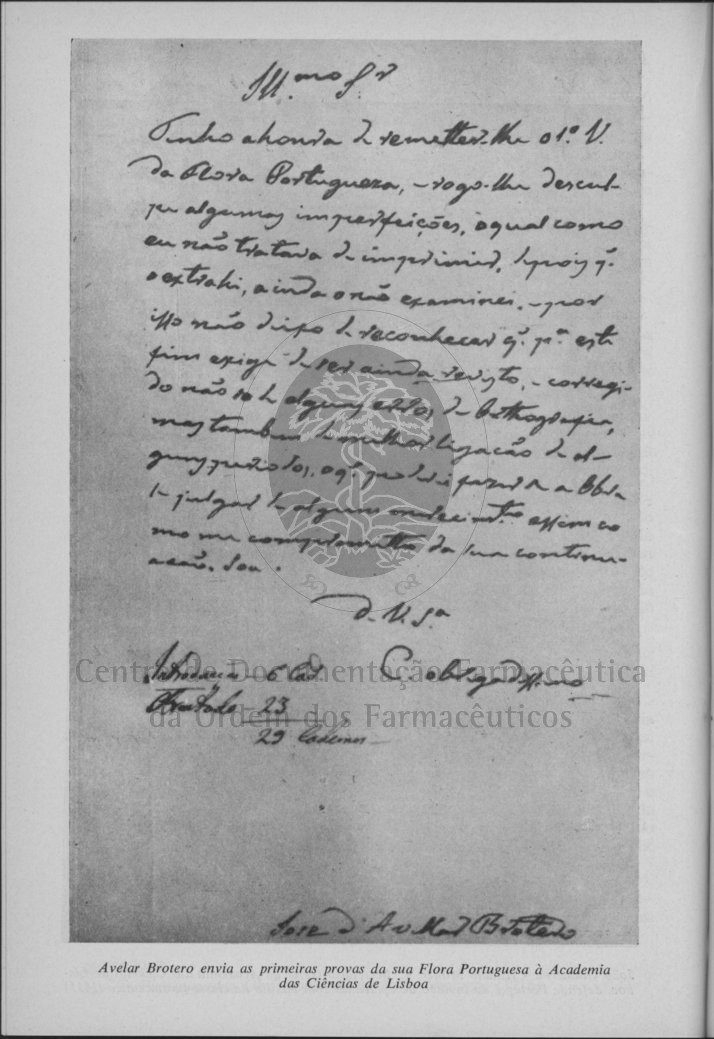 Ill.mo S.r
Tenho a honra de remetter-lhe o 1.º V.
da Flora Portugueza, e rogo-lhe descul-
pe algumas imperfeições, o qual como
eu não tratava de imprimir, depois q.
o extrahi, ainda o não examinei, e por
isso não deixo de reconhecer q. p.ª este
fim exige de ser ainda revisto, e corregi-
do não só de alguns erros de Orthografia,
mas tambem de melhor ligação de al-
guns periodos, o q. poderá fazer a Obra
de julgar de algum merecim.to assim co
mo me comprometto da sua continu-
ação. Sou.
D. V. S.ª
C. obrigadissimo
Introducção - 6 Cad.
Tratado 23
29 Cadernos
Centro de Documentação Farmacêutica
da Ordem dos Farmacêuticos
Joze d'Avellar Brotero
Avelar Brotero envia as primeiras provas da sua Flora Portuguesa à Academia
das Ciências de Lisboa